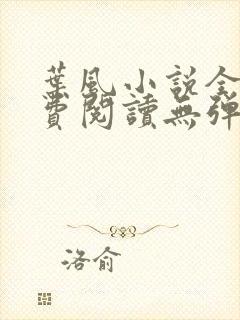 葉風小說全
費閱讀無彈
洛俞